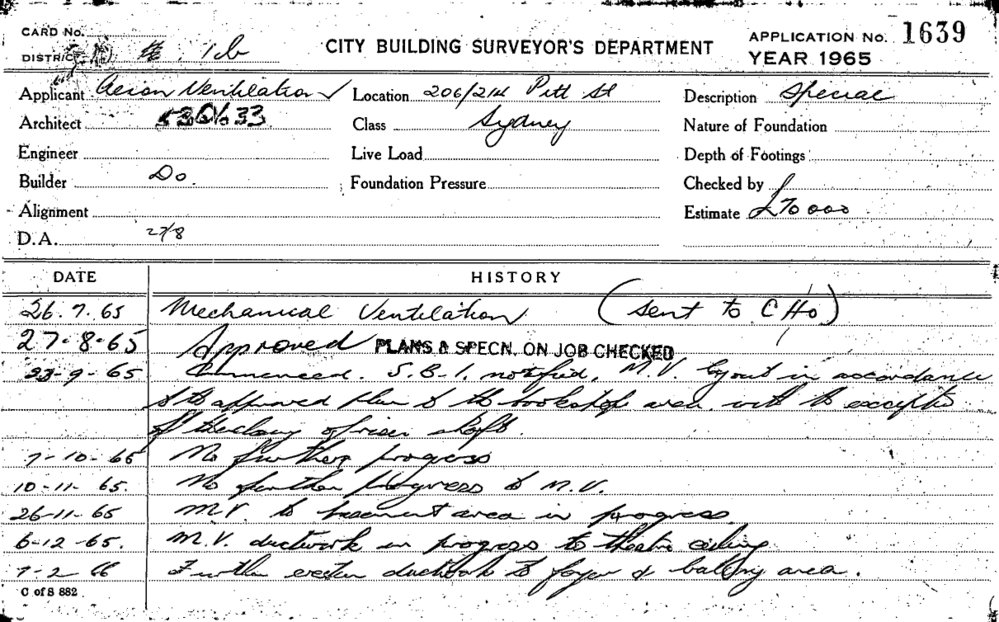 CARD No.
DISTRICT 1b
CITY BUILDING SURVEYOR'S DEPARTMENT
APPLICATION No. 1639
YEAR 1965
Applicant Acron Ventilation
Location 206/214 Pitt St
Description Special
Architect
Class Sydney
Nature of Foundation
Engineer
Live Load
Depth of Footings
Builder Do.
Foundation Pressure
Checked by
Alignment
Estimate £70 000
D.A. 27/8
DATE HISTORY
26.7.65 Mechanical Ventilation (Sent to C Ho)
27-8-65 Approved PLANS & SPECN. ON JOB CHECKED
23-9-65 Commenced. S.B.I. notified. M.V. layout in accordance
to the approved plan to the bookshop area with the
of riser shaft.
7-10-65 No further progress
10-11-65. No further progress to M.V.
26-11-65 M.V. to basement area in progress
6-12-65. M.V. ductwork in progress to theatre ceiling
7-2 66 Further ductwork to foyer & area.
C of S 882